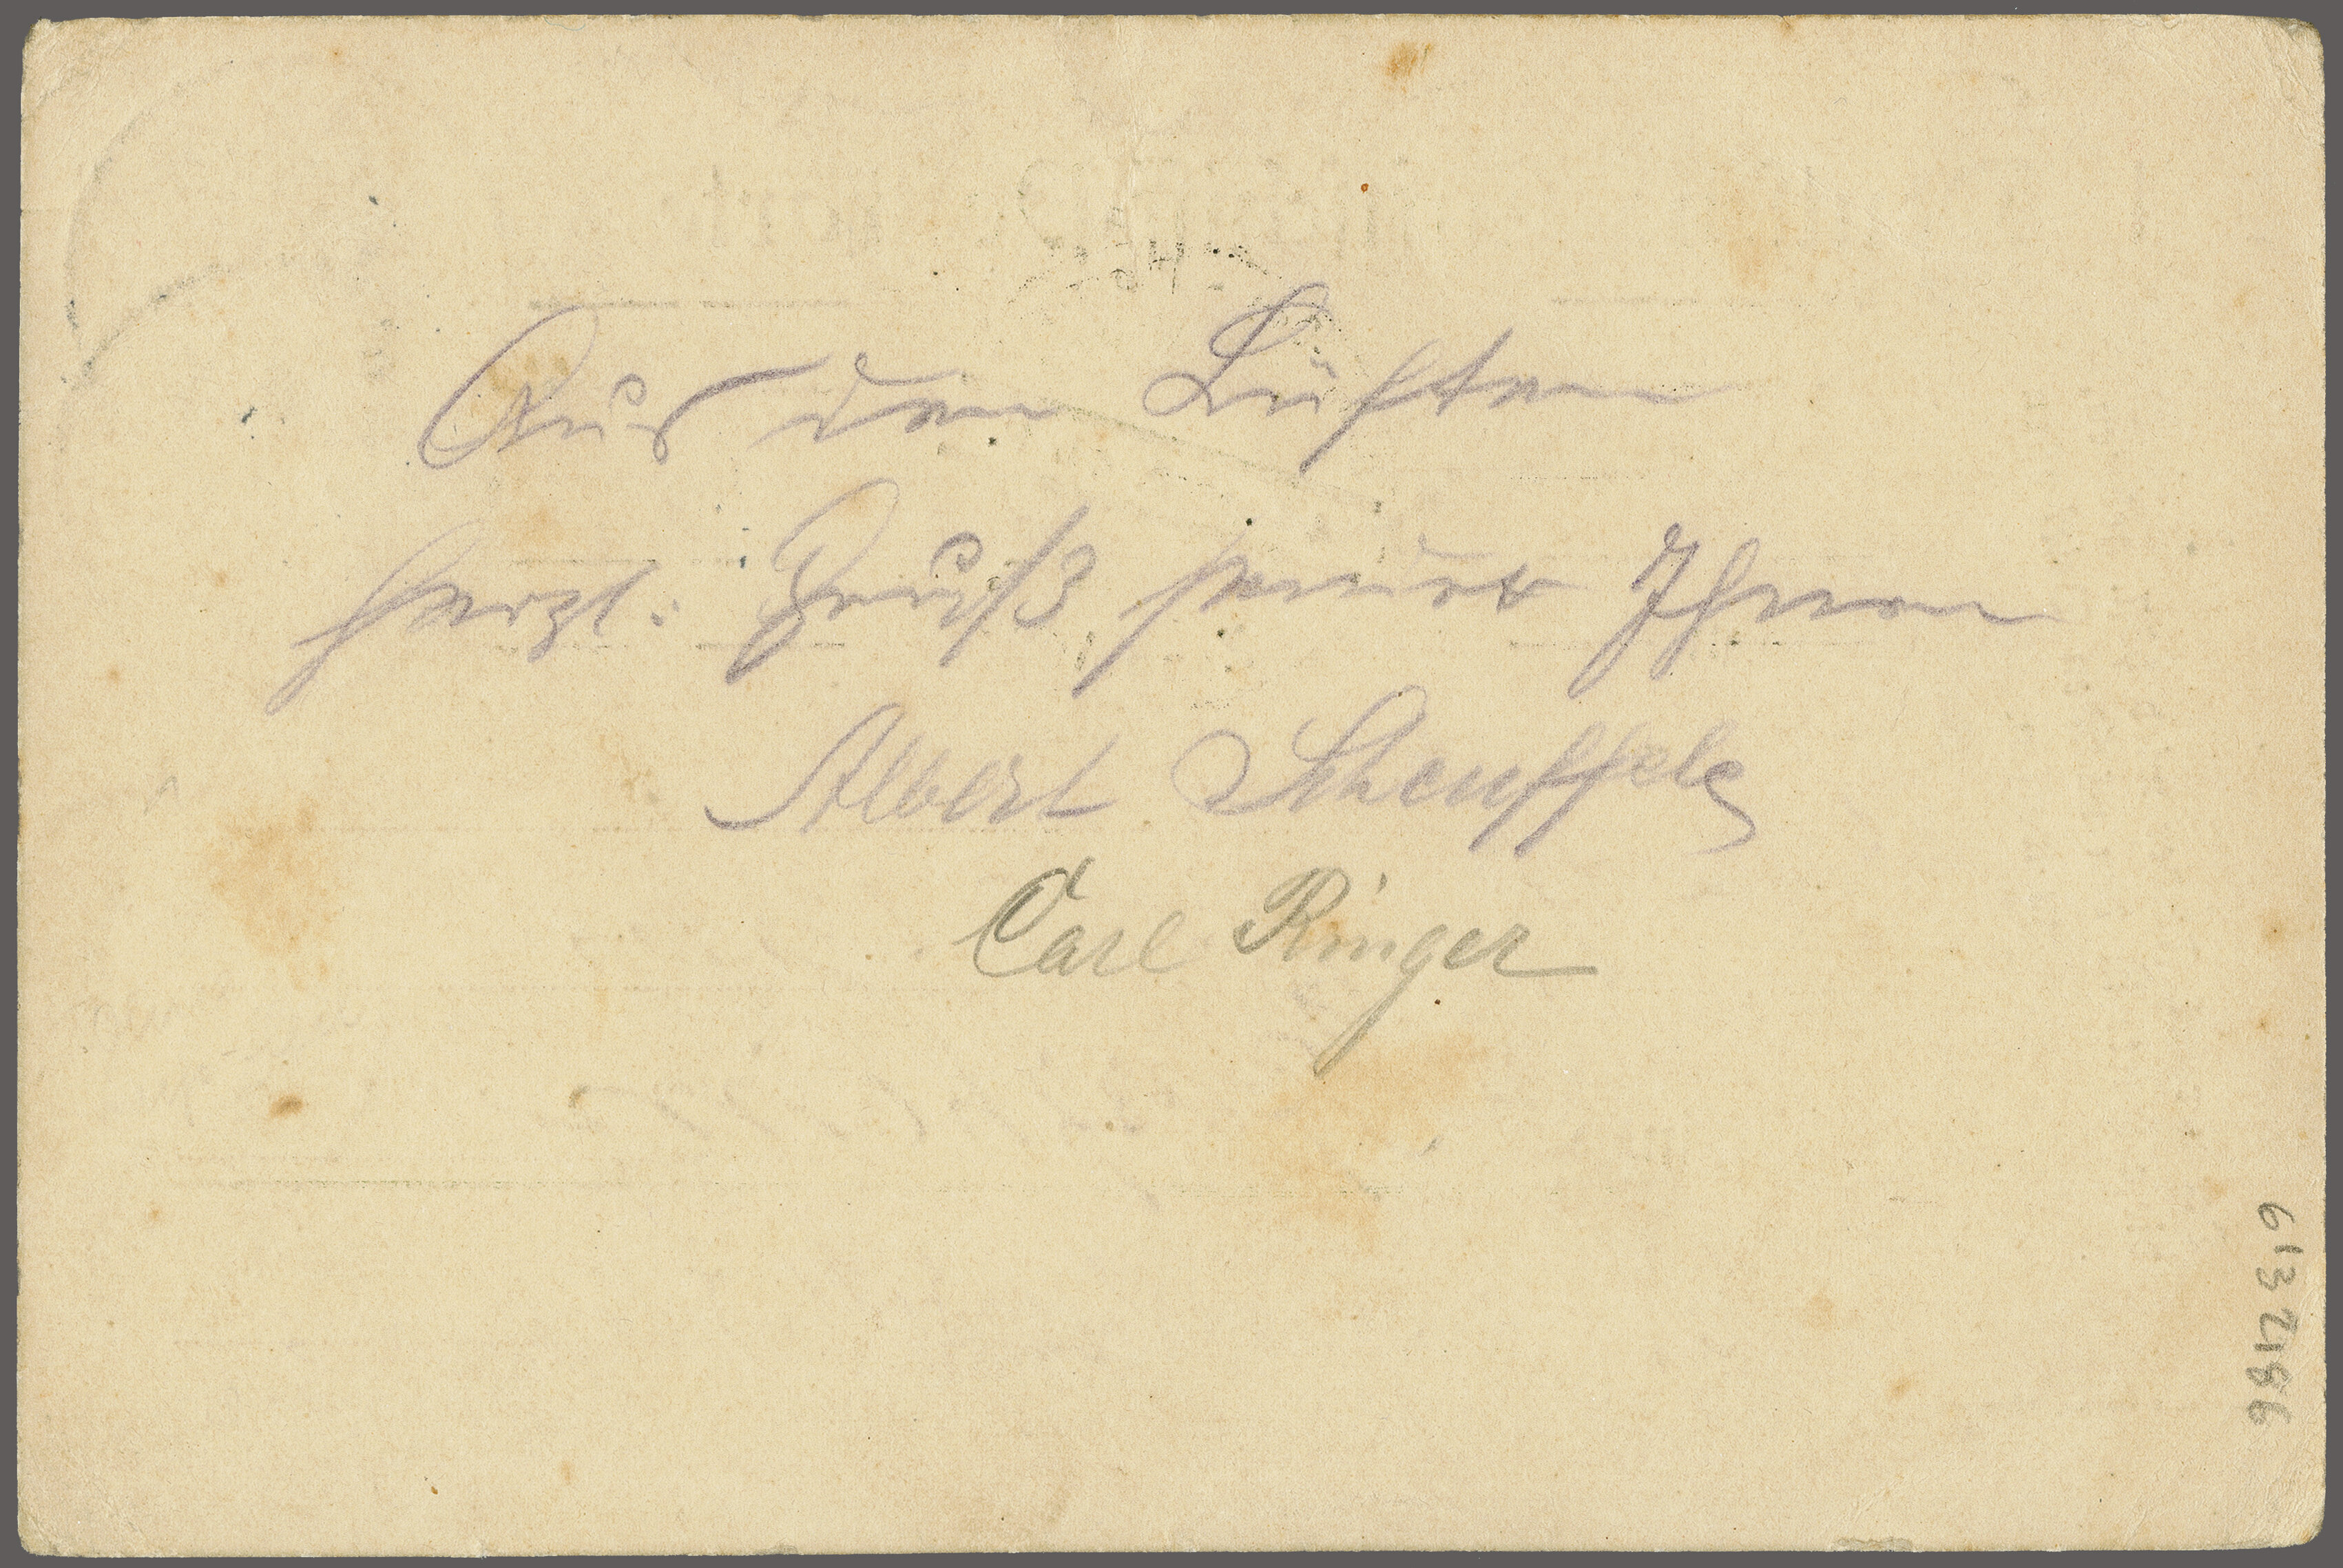 Aus den Lüften
herzl. Gruß sendet Ihnen
Albert Scheuffele
Carl Ringer
6132486